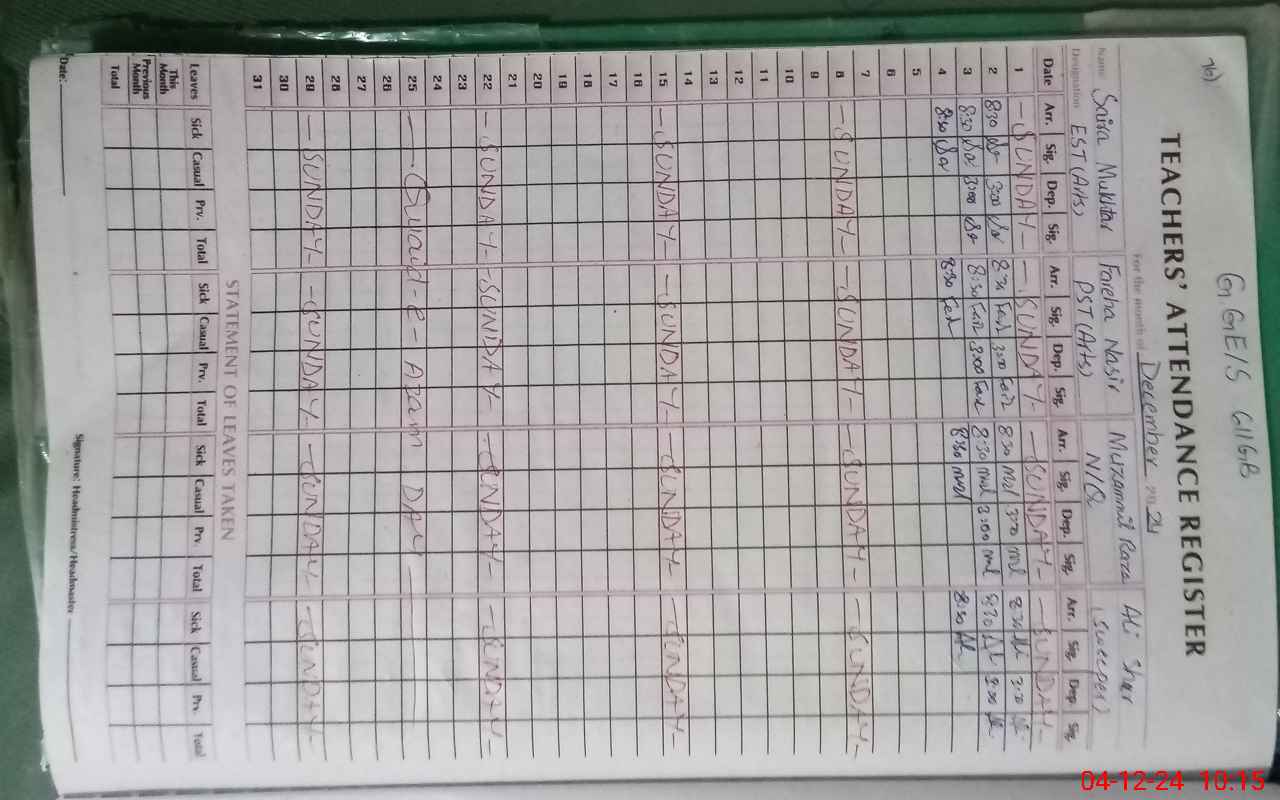 76)
G.GE/S 611GB
TEACHERS' ATTENDANCE REGISTER
For the month of December 2024
Name Saira Mukhtar Fareha Nasir Muzammil Raza Ali Sher
Designation EST (Arts) PST (Arts) N/Q (Sweeper)
Date Arr. Sig. Dep. Sig. Arr. Sig. Dep. Sig. Arr. Sig. Dep. Sig. Arr. Sig. Dep. Sig.
1 - SUNDAY - - SUNDAY - - SUNDAY - - SUNDAY -
2 8:30 3:00 8:30 3:00 8:30 3:00 8:30 3:00
3 8:30 3:00 8:30 3:00 8:30 3:00 8:30 3:00
4 8:30 8:30 8:30 8:30
5
6
7
8 - SUNDAY - - SUNDAY - - SUNDAY - - SUNDAY -
9
10
11
12
13
14
15 - SUNDAY - - SUNDAY - - SUNDAY - - SUNDAY -
16
17
18
19
20
21
22 - SUNDAY - - SUNDAY - - SUNDAY - - SUNDAY -
23
24
25 - Quaid-e-Azam DAY
26
27
28
29 - SUNDAY - - SUNDAY - - SUNDAY - - SUNDAY -
30
31
STATEMENT OF LEAVES TAKEN
Leaves Sick Casual Prv. Total Sick Casual Prv. Total Sick Casual Prv. Total Sick Casual Prv. Total
This Month
Previous Month
Total
Date: Signature: Headmistress/Headmaster
04-12-24 10:15